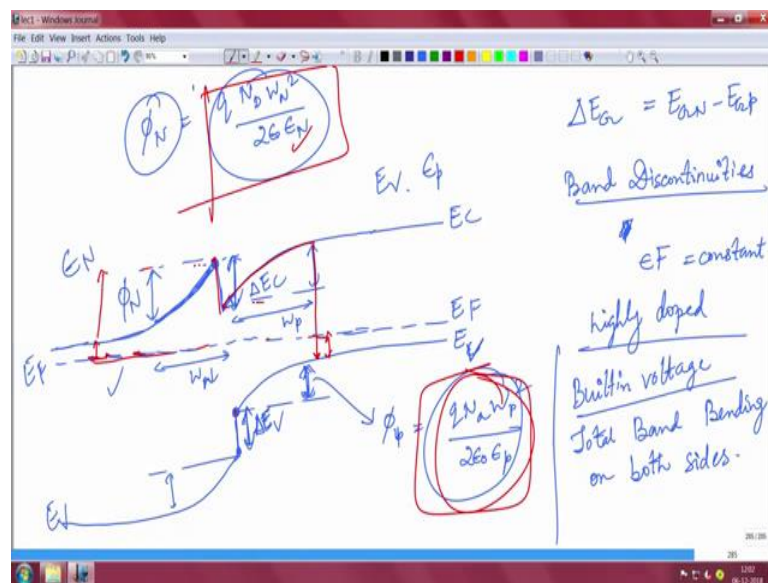 lec1 - Windows Journal
File Edit View Insert Actions Tools Help
φN = q ND WN² / 2 ϵ0 ϵN
ΔEG = EGN - EGP
Band Discontinuities
ϵF = constant
highly doped
Builtin voltage
Total Band Bending
on both sides.
EV. ϵp
EC
ϵN
φN
ΔEC
Wp
EF
EF
WN
EV
ΔEV
φp = q Na Wp² / 2ϵ0 ϵp
EV
285/285
285
12:02
06-12-2018